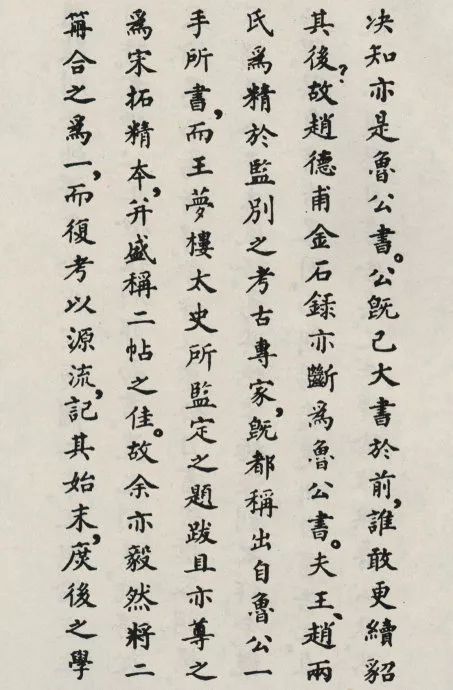 决知亦是魯公書。公旣已大書於前，誰敢更續貂
其後？故趙德甫金石録亦斷爲魯公書。夫王、趙兩
氏爲精於監別之考古專家，旣都稱出自魯公一
手所書，而王夢樓太史所監定之題跋且亦尊之
爲宋拓精本，并盛稱二帖之佳。故余亦毅然將二
冊合之爲一，而復考以源流，記其始末，庶後之學